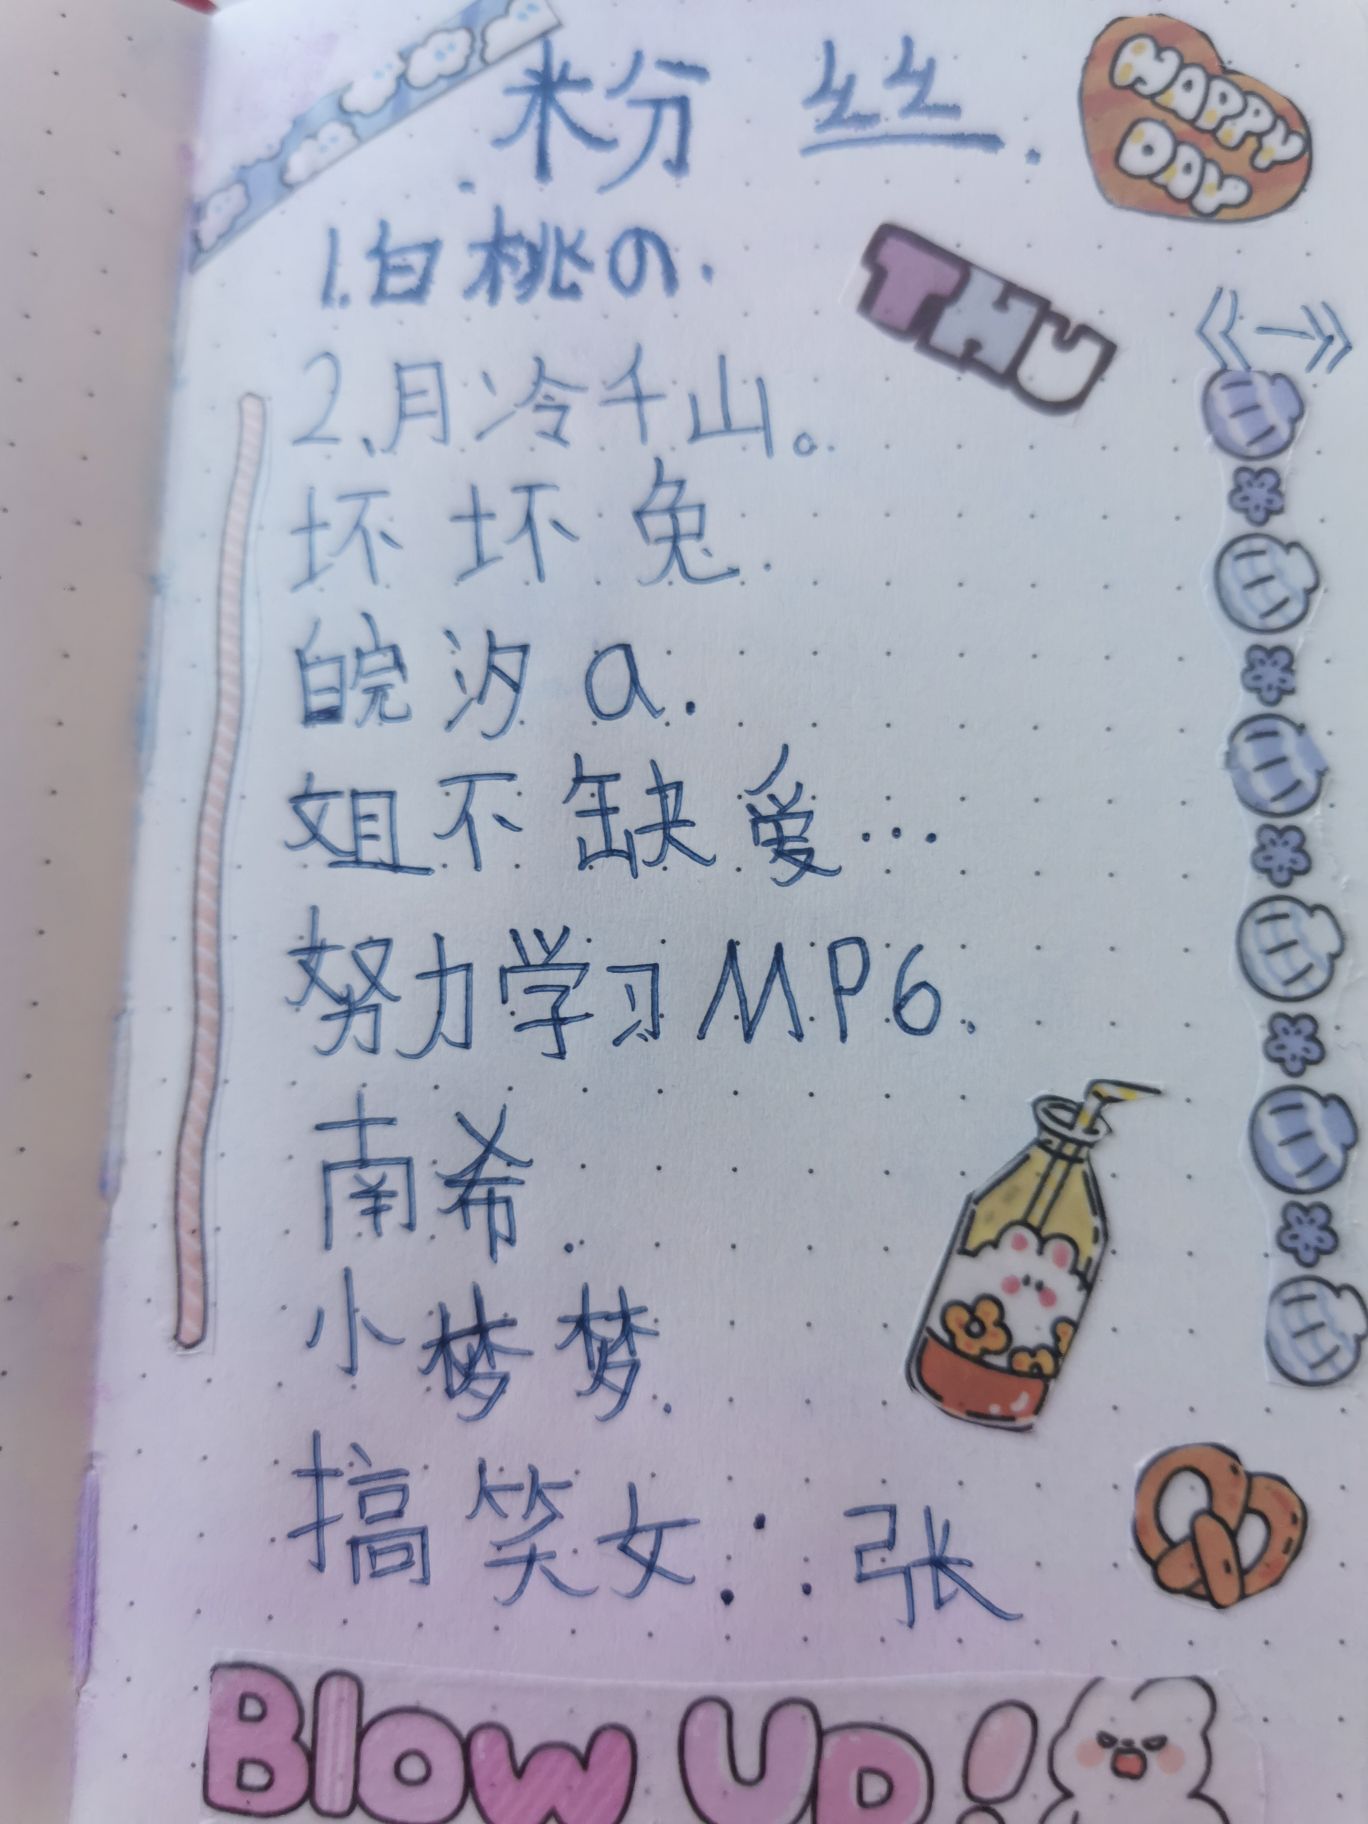 粉 丝.
HAPPY DAY
1.白桃の.
THU
2.月冷千山。
坏坏兔.
皖汐a.
姐不缺爱…
努力学习MP6.
南希.
小梦梦.
搞笑女:张
Blow Up!